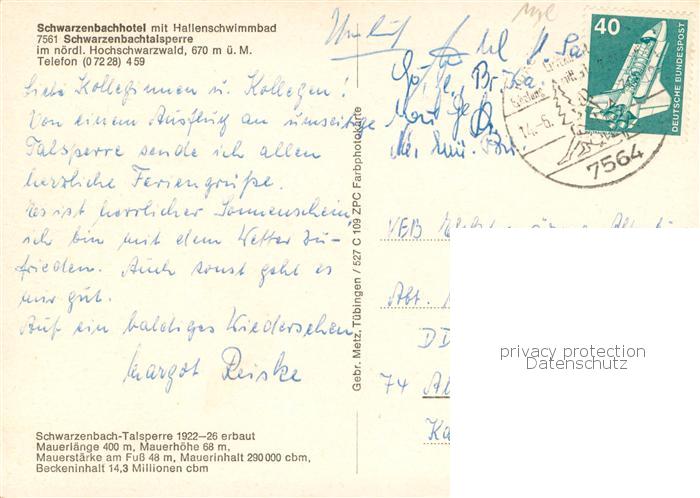 Schwarzenbachhotel mit Hallenschwimmbad
7561 Schwarzenbachtalsperre
im nördl. Hochschwarzwald, 670 m ü. M.
Telefon (0 72 28) 4 59
Liebe Kolleginnen u. Kollegen!
Von einem Ausflug an umseitige
Talsperre sende ich allen
herzliche Feriengrüße.
Es ist herrlicher Sonnenschein,
ich bin mit dem Wetter zu-
frieden. Auch sonst geht es
mir gut.
Auf ein baldiges Wiedersehen
Margot Reiske
Schwarzenbach-Talsperre 1922—26 erbaut
Mauerlänge 400 m, Mauerhöhe 68 m,
Mauerstärke am Fuß 48 m, Mauerinhalt 290 000 cbm,
Beckeninhalt 14,3 Millionen cbm
Gebr. Metz, Tübingen / 527 C 109 ZPC Farbphotokarte
Umlauf
40
DEUTSCHE BUNDESPOST
7564
VEB
Abt.
DD
74 Al
Ka
privacy protection
Datenschutz